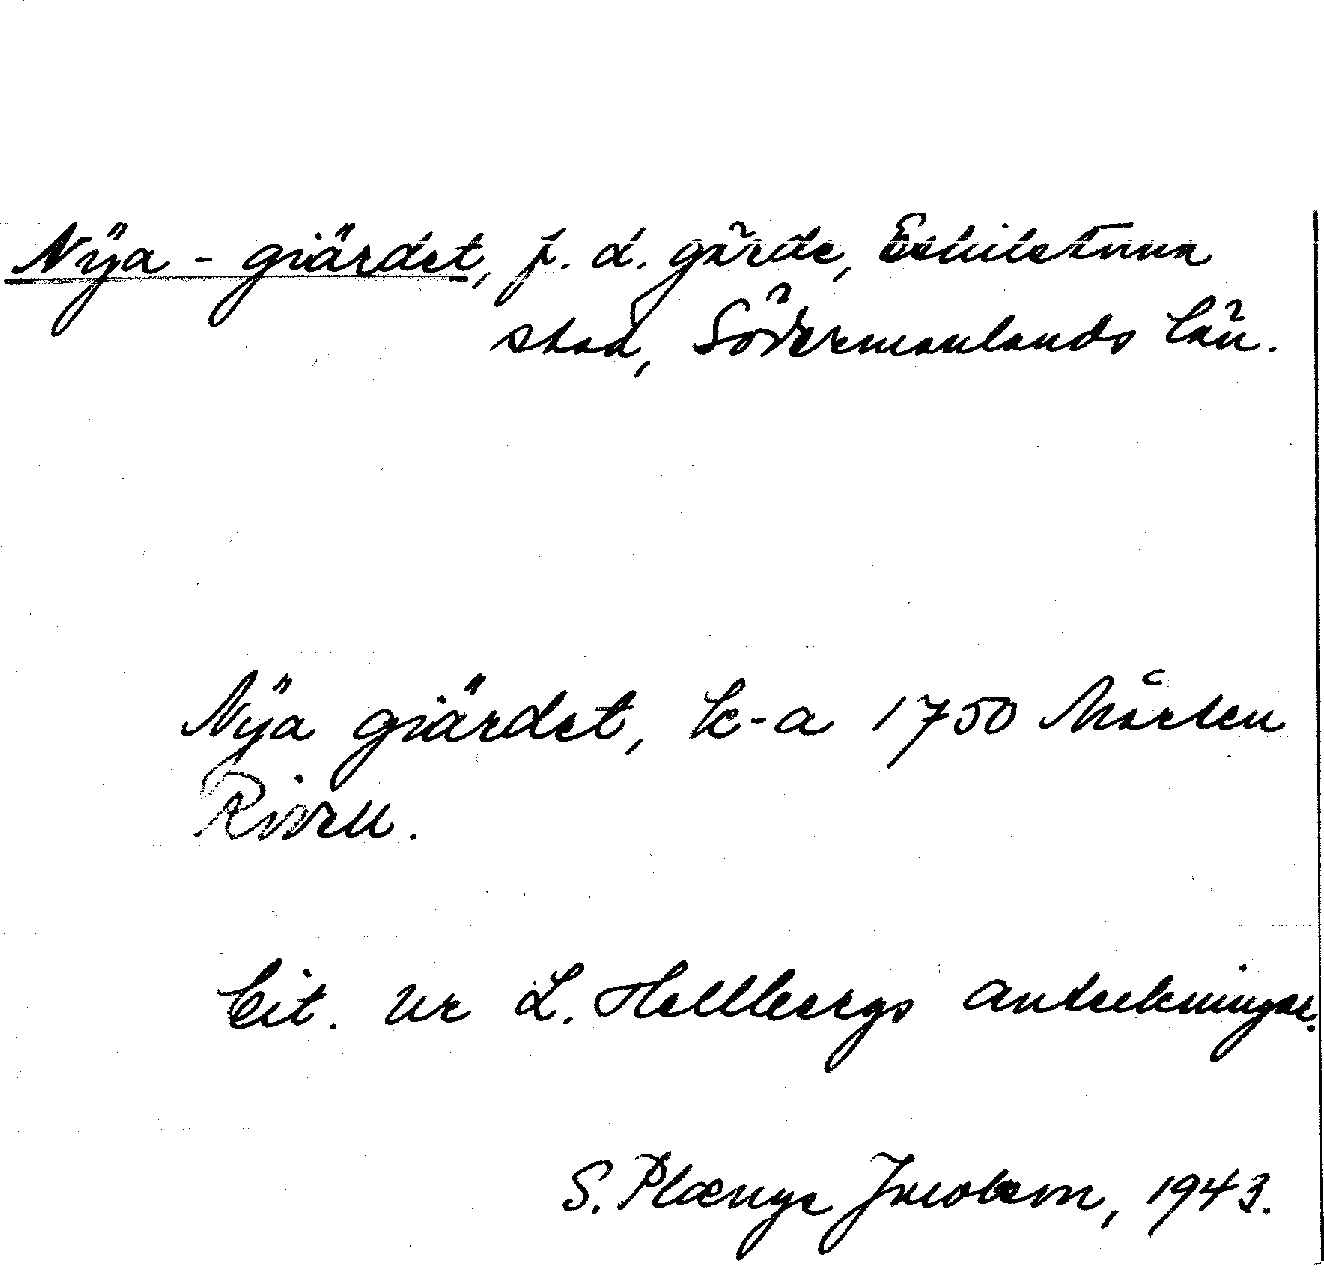 Nÿa - giärdet, f. d. gärde, Eskilstuna
stad, Södermanlands län.
Nÿa giärdet, k-a 1750 Mårten
Rissell.
Cit. ur L. Hellbergs anteckningar.
S. Plænge Jacobson, 1943.